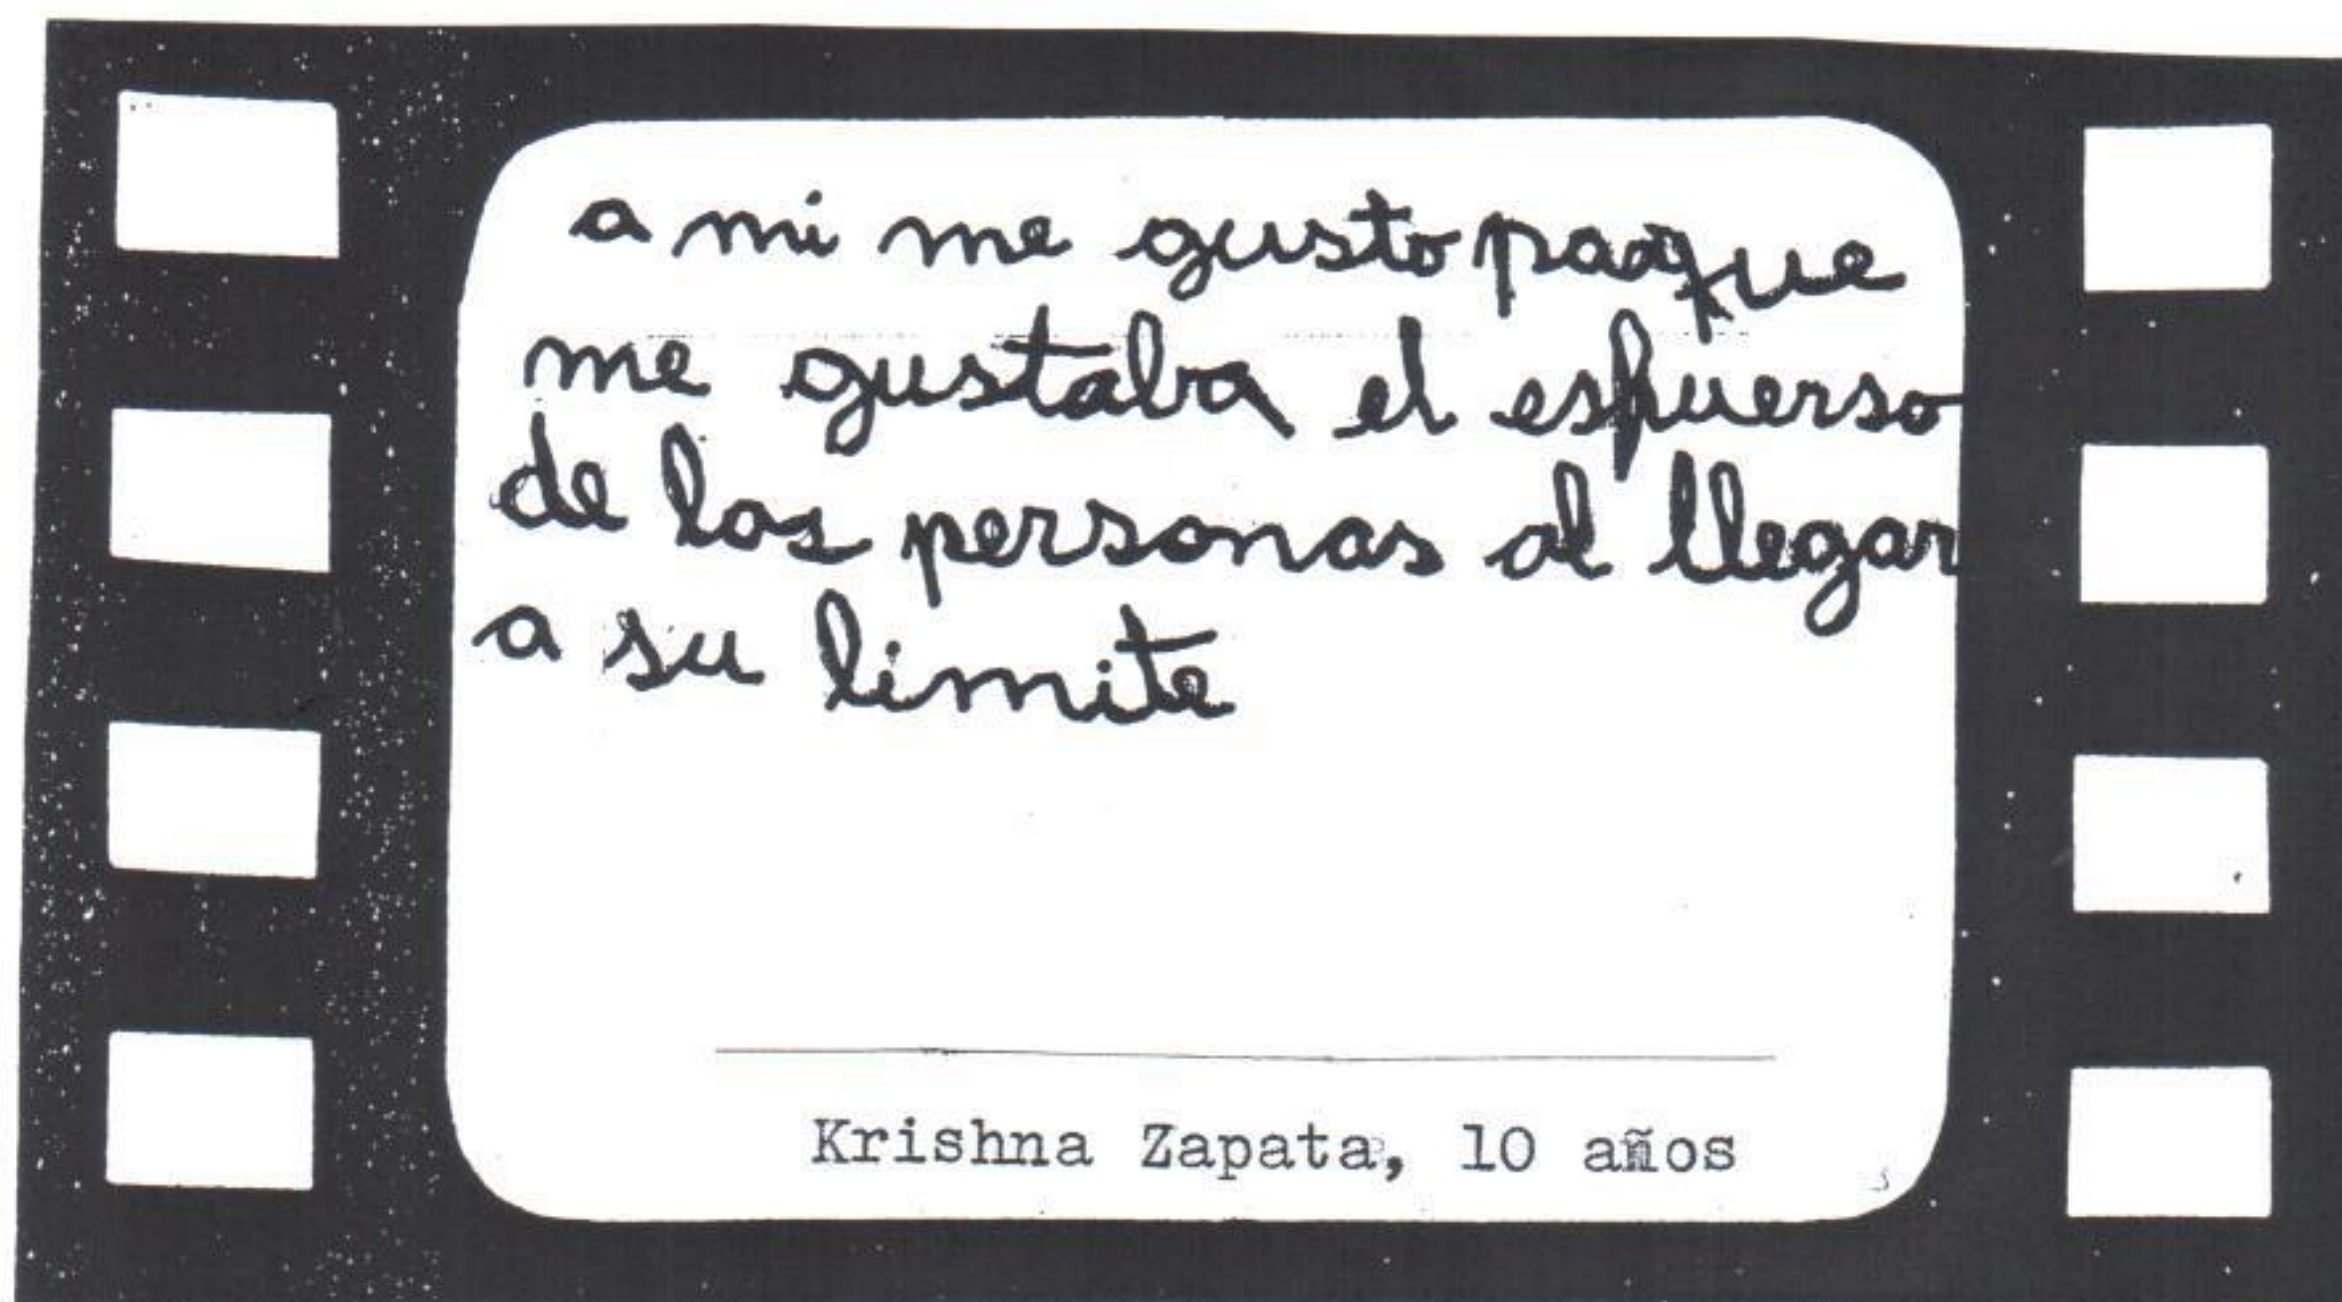 a mi me gusto porque
me gustaba el esfuerso
de las personas al llegar
a su limite
Krishna Zapata, 10 años